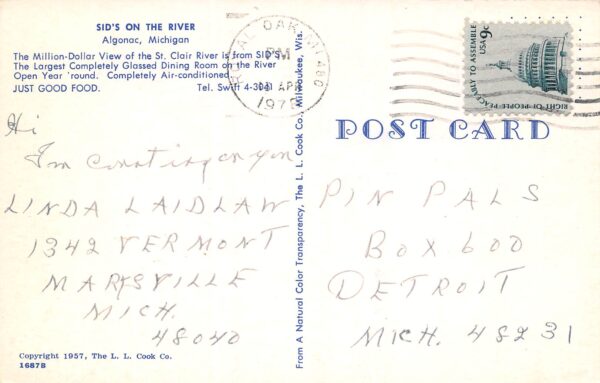 SID'S ON THE RIVER
Algonac, Michigan
The Million-Dollar View of the St. Clair River is from SID'S.
The Largest Completely Glassed Dining Room on the River
Open Year 'round. Completely Air-conditioned.
JUST GOOD FOOD. Tel. Swift 4-3041
Hi
I'm counting on you
LINDA LAIDLAW
1342 VERMONT
MARYSVILLE
MICH.
48040
Copyright 1957, The L. L. Cook Co.
1687B
From A Natural Color Transparency, The L. L. Cook Co., Milwaukee, Wis.
ROYAL OAK, MI 480
PM
APR
RIGHT OF PEOPLE PEACEABLY TO ASSEMBLE
USA 9c
POST CARD
PIN PALS
BOX 600
DETROIT
MICH. 48231